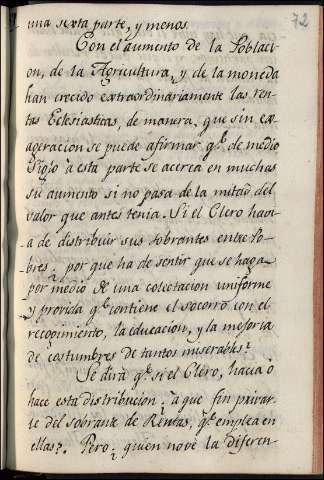 72
una sexta parte, y menos.
Con el aumento de la Poblaci-
on, de la Agricultura, y de la moneda
han crecido extraordinariamente las ren-
tas Eclesiasticas, de manera, que sin ex-
ageración se puede afirmar q.e de medio
Siglo à esta parte se acerca en muchas
su aumento si no pasa de la mitad del
valor que antes tenia. Si el Clero havi-
a de distribuir sus sobrantes entre Po-
bres; por que ha de sentir que se haga
por medio de una colectacion uniforme
y provida q.e contiene el socorro con el
recogimiento, la educacion, y la mejoria
de costumbres de tantos miserables?
Se dirà q.e si el Clero, hacia ò
hace esta distribucion; a que fin privar-
le del sobrante de Rentas, q.e emplea en
ellas?. Pero; quien no vè la diferen-